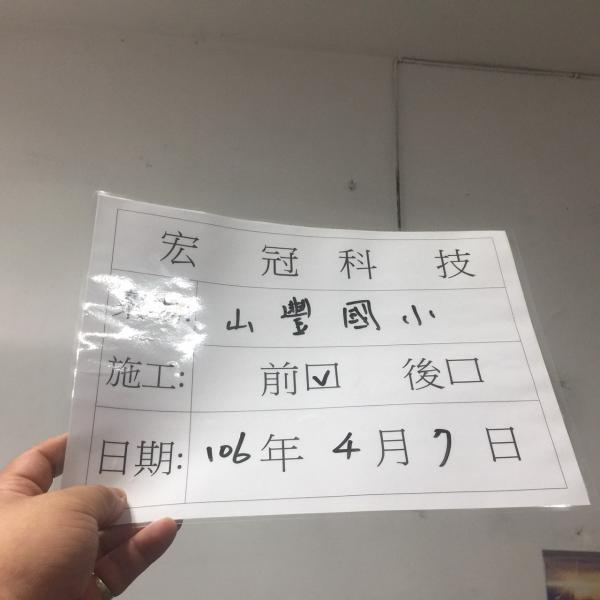 宏 冠 科 技
山 豐 國 小
施工: 前☑ 後☐
日期: 106年 4月 7日